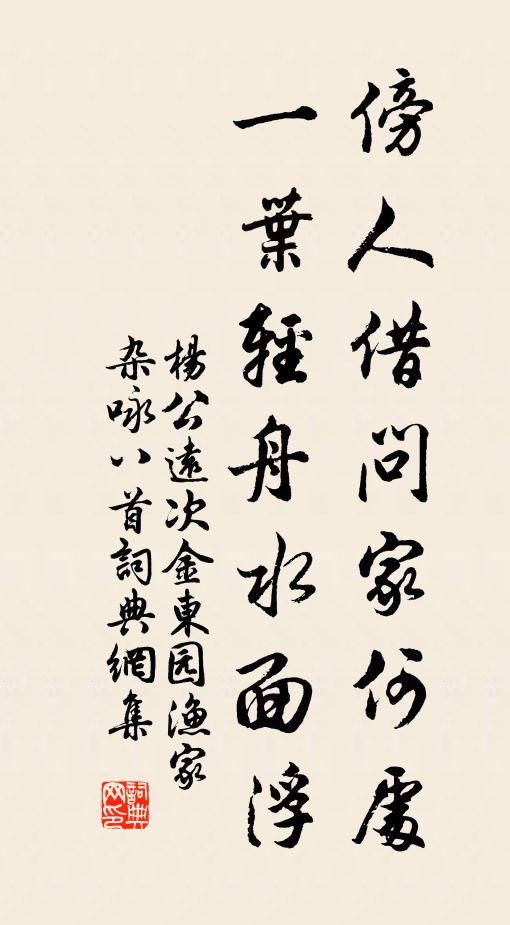 傍人借问家何處
一葉輕舟水面浮
楊公遠次金東园漁家
杂咏八首詞典網集
詞典网印